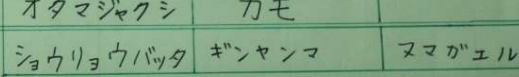 オタマジャクシ カモ
ショウリョウバッタ ギンヤンマ ヌマガエル